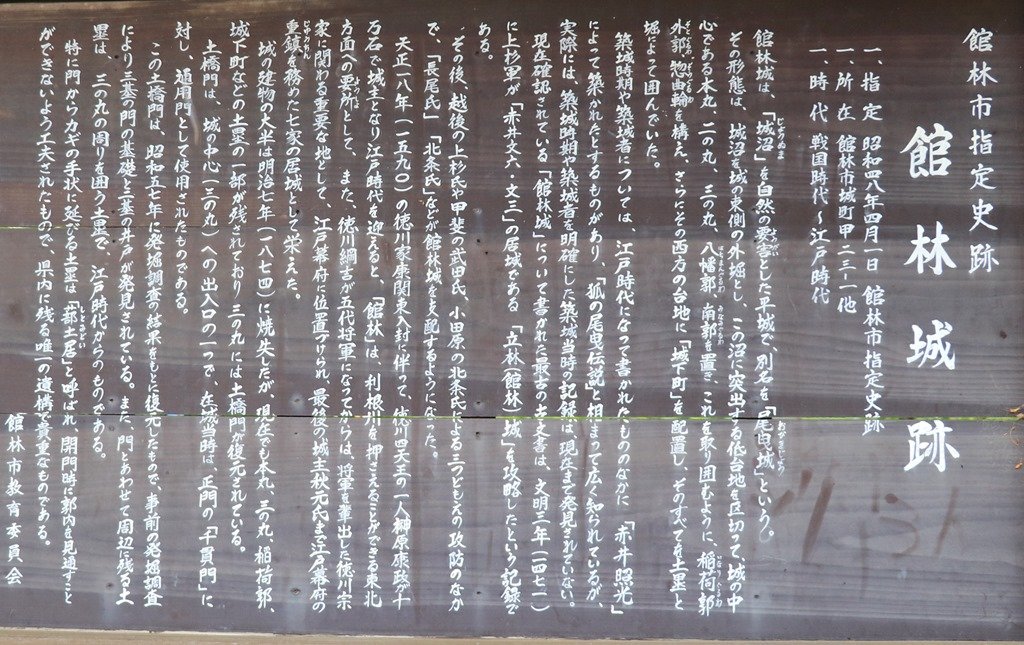 館林市指定史跡
館林城跡
一、指定 昭和四八年四月一日 館林市指定史跡
一、所在 館林市城町甲二三・一他
一、時代 戦国時代~江戸時代
館林城は、「城沼」を自然の要害とした平城で、別名を「尾曳城」という。
その形態は、城沼を城の東側の外堀とし、この沼に突出する低台地を区切って、城の中
心である本丸、二の丸、三の丸、八幡郭、南郭を置き、これを取り囲むように、稲荷郭、
外郭、惣曲輪を構え、さらにその西方の台地に「城下町」を配置し、そのすべてを土塁と
堀によって囲んでいた。
築城時期や築城者については、江戸時代になって書かれたもののなかに「赤井照光」
によって築かれたとするものがあり、「狐の尾曳伝説」と相まって広く知られているが、
実際には、築城時期や築城者を明確にした築城当時の記録は、現在まで発見されていない。
現在確認されている「館林城」について書かれた最古の古文書は、文明三年(一四七一)
に上杉軍が「赤井文六・文三」の居城である「立林(館林)城」を攻略したという記録で
ある。
その後、越後の上杉氏や甲斐の武田氏、小田原の北条氏による三つどもえの攻防のなか
で、「長尾氏」「北条氏」などが館林城を支配するようになった。
天正一八年(一五九〇)の徳川家康関東入封に伴って、徳川四天王の一人榊原康政が十
万石で城主となり江戸時代を迎えると、「館林」は、利根川を押さえることができる東北
方面への要所として、また、徳川綱吉が五代将軍になってからは、将軍を輩出した徳川宗
家に関わる重要な地として、江戸幕府に位置づけられ、最後の城主秋元氏まで江戸幕府の
重鎮を務めた七家の居城として栄えた。
城の建物の大半は明治七年(一八七四)に焼失したが、現在でも本丸、三の丸、稲荷郭、
城下町などの土塁の一部が残されており、三の丸には土橋門が復元されている。
土橋門は、城の中心(三の丸)への出入口の一つで、在城当時は、正門の「千貫門」に
対し、通用門として使用されたものである。
この土橋門は、昭和五七年に発掘調査の結果をもとに復元したもので、事前の発掘調査
により三基の門の基礎と二基の井戸が発見されている。また、門とあわせて周辺に残る土
塁は、三の丸の周りを囲う土塁で、江戸時代からのものである。
特に門からカギの手状に延びる土塁は「蔀土居」と呼ばれ、開門時に郭内を見通すこと
ができないよう工夫されたもので、県内に残る唯一の遺構で貴重なものである。
館林市教育委員会